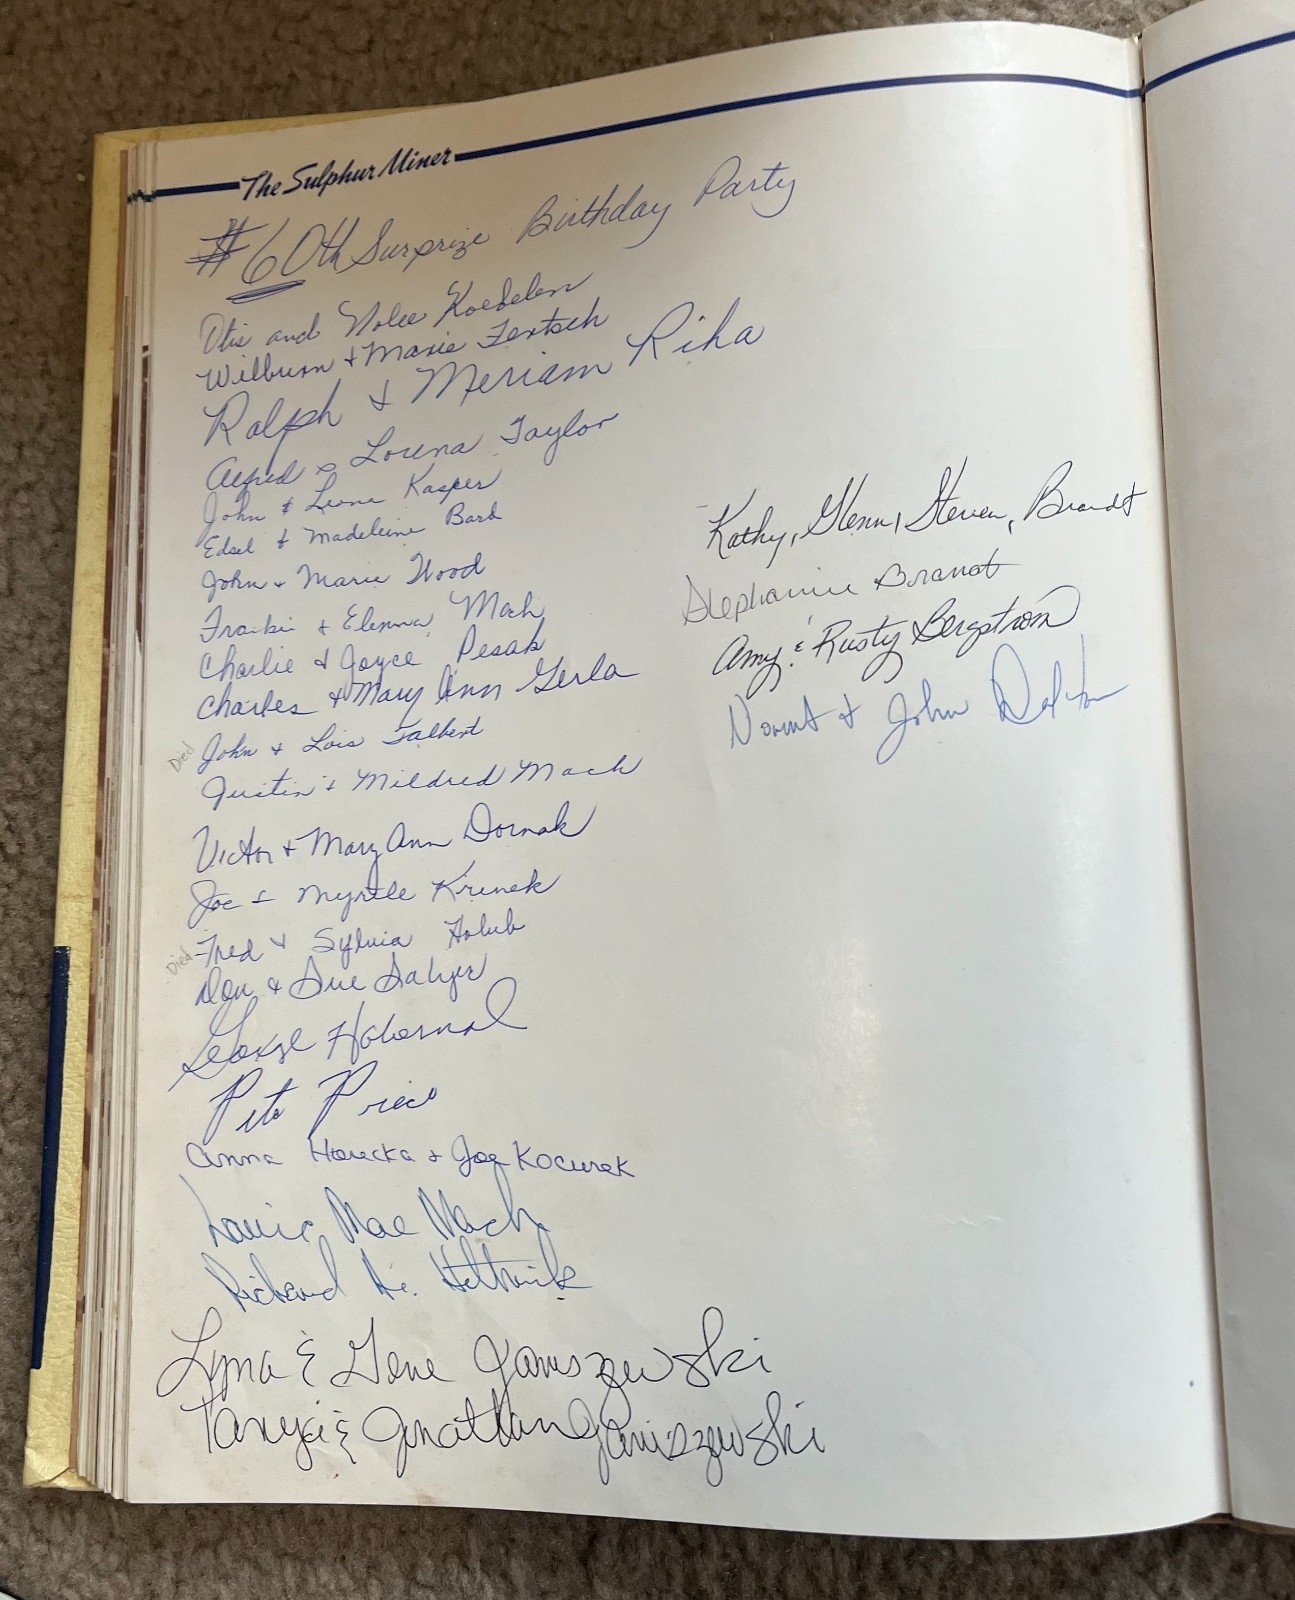 The Sulphur Miner
#60th Surprize Birthday Party
Otis and Nolee Koebelen
Wilburn + Marie Fertsch
Ralph & Meriam Riha
Alfred & Lorena Taylor
John & Leona Kasper
Edsel & Madeleine Bard
John + Marie Wood
Frankie + Elenora Mach
Charlie & Joyce Pesak
Charles + Mary Ann Gerla
Died John + Lois Talbert
Justin + Mildred Mach
Victor + Mary Ann Dornak
Joe & Myrtle Krenek
Died Fred & Sylvia Holub
Don & Sue Salyer
George Habernal
Pete Price
Anna Horecka & Joe Kocurek
Louis Mae Mach
Richard
Lyna & Gene Janiszewski
Tanya & Jonathan Janiszewski
Kathy, Glenn, Steven, Brandt
Stephanie Brandt
Amy & Rusty Bergstrom
& John